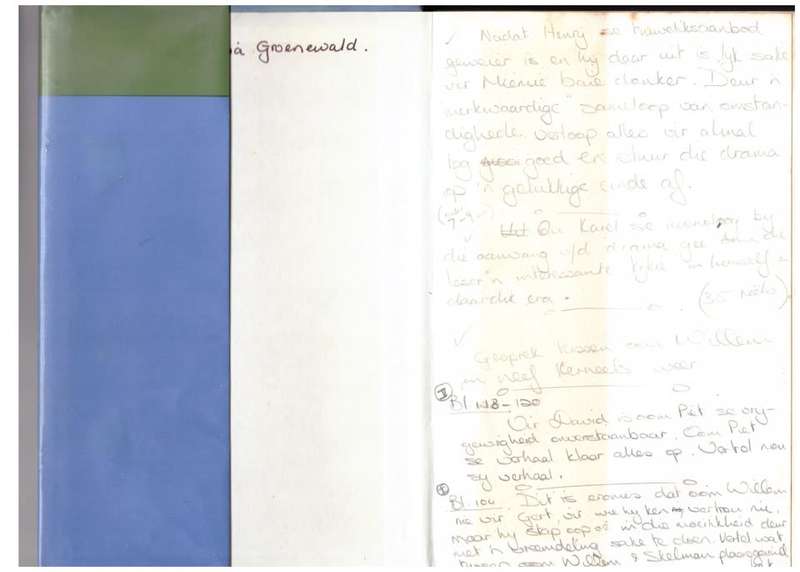 à Groenewald.
✓ Nadat Henry se huweliksaanbod
geweier is en hy daar uit is lyk sake
vir Miemie baie donker. Deur 'n
merkwaardige "sameloop van omstan-
dighede verloop alles vir almal
tog goed en stuur die drama
op 'n gelukkige einde af.
✓ Ou Karel se monoloog by
die aanvang v/d drama gee die
leser 'n interessante kykie in homself
daardie era. (35
✓
Gesprek tussen oom Willem
en neef Kerneels weer
Bl 118-120
Vir Dawid is oom Piet se vry-
gewigheid onverstaanbaar. Oom Piet
se verhaal klaar alles op. Vertel nou
sy verhaal.
Bl 104 Dit is erones dat oom Willem
nie vir Gert vir wie hy ken vertrou nie,
maar hy skip op in die moeilikheid deur
met 'n vreemdeling sake te doen. Vertel wat
tussen oom Willem & Skelman